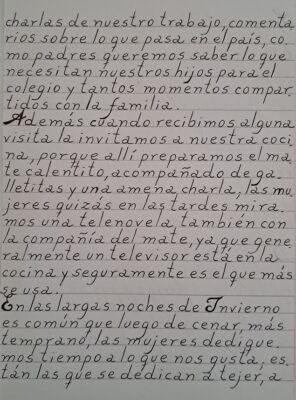 charlas de nuestro trabajo, comenta
rios sobre lo que pasa en el país, co
mo padres queremos saber lo que
necesitan nuestros hijos para el
colegio y tantos momentos compar
tidos con la familia.
Además cuando recibimos alguna
visita la invitamos a nuestra coci
na, porque allí preparamos el ma
te calentito, acompañado de ga
lletitas y una amena charla, las mu
jeres quizás en las tardes mira
mos una telenovela, también con
la compañía del mate, ya que gene
ralmente un televisor está en la
cocina y seguramente es el que más
se usa.
En las largas noches de Invierno
es común que luego de cenar, más
temprano, las mujeres dedique
mos tiempo a lo que nos gusta, es
tán las que se dedican a tejer, a